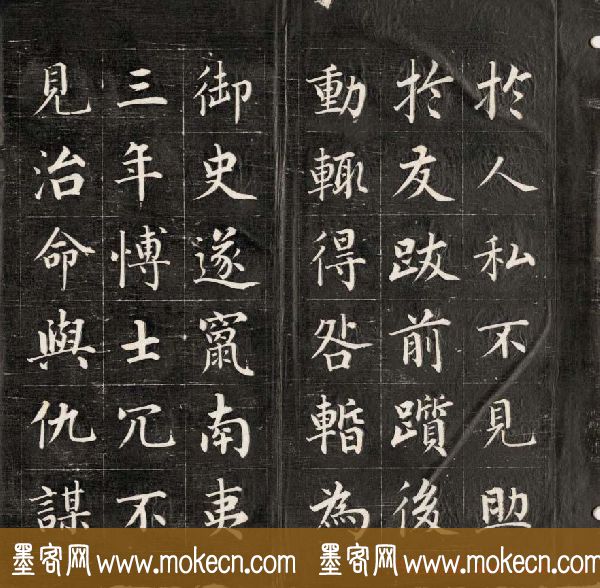 扵人私不見助
扵友跋前躓後
動輙得咎暫為
御史遂竄南夷
三年愽士冗不
見治命與仇謀
墨客网 www.mokecn.com 墨客网 www.mokecn.com